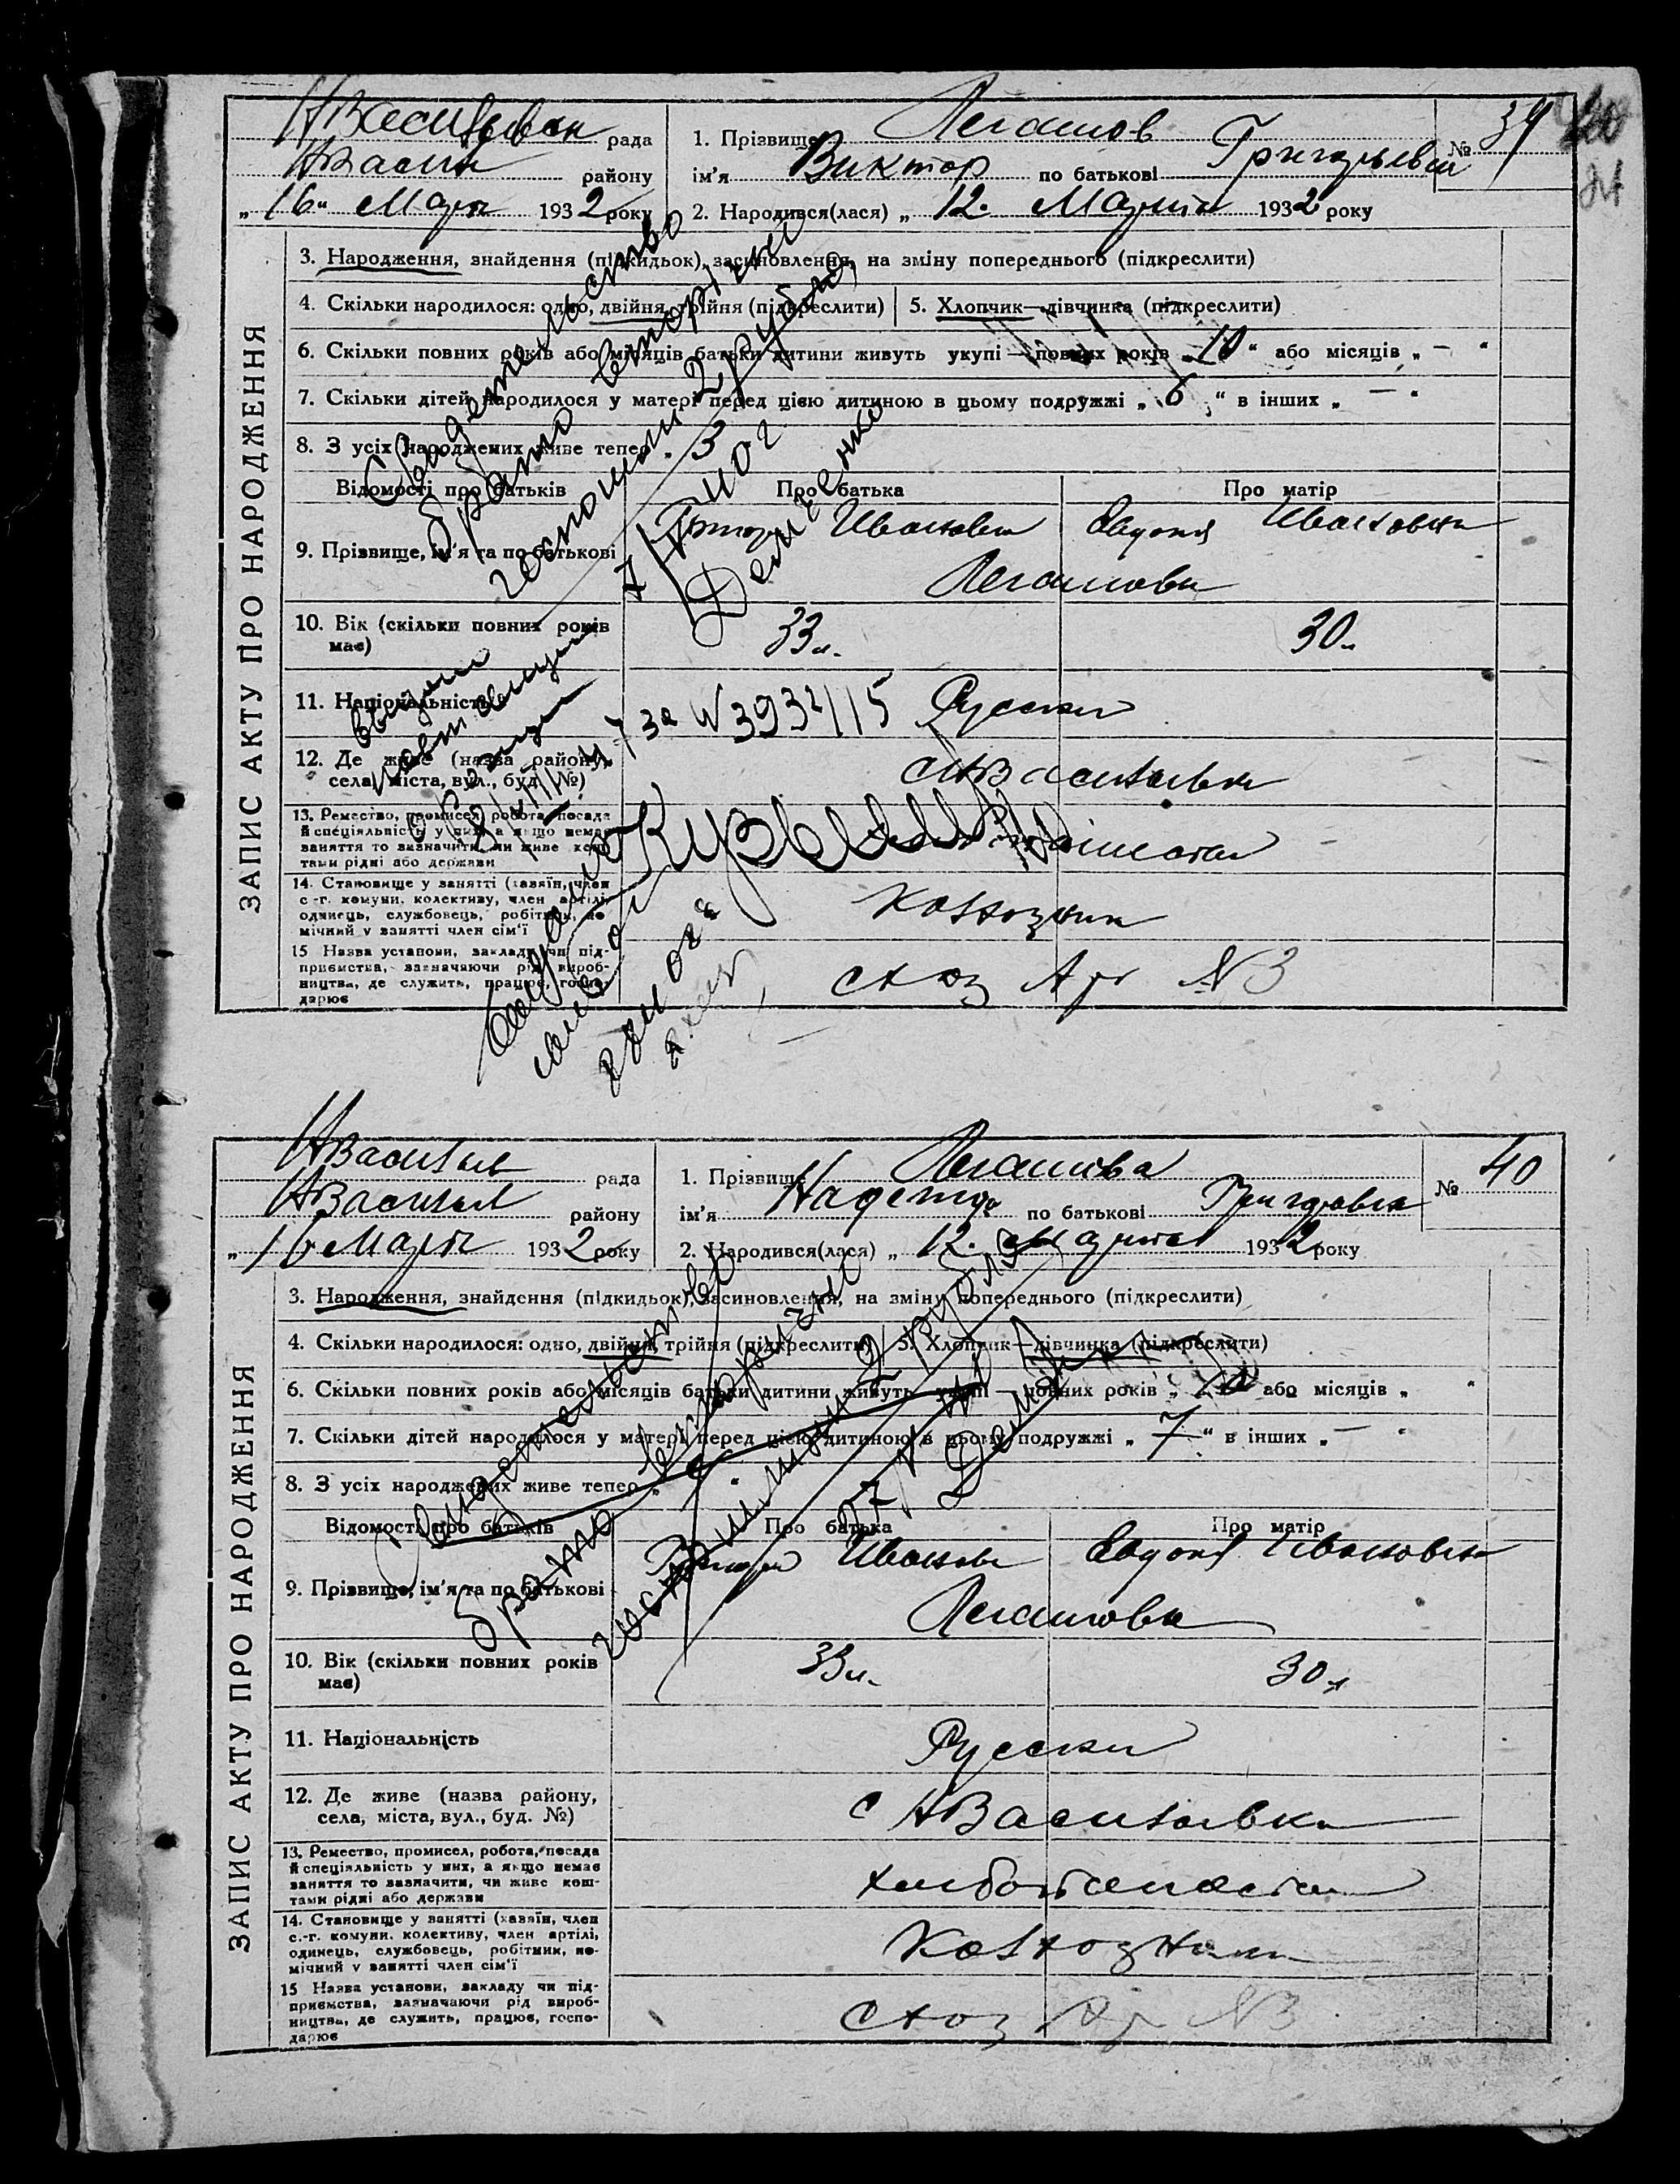 НВасильевск рада
НВасил району
„16“ Марта 1932 року
1. Прізвище
ім'я Виктор по батькові Григорьевич
2. Народився(лася) „12. Марта 1932 року
№ 39
ЗАПИС АКТУ ПРО НАРОДЖЕННЯ
3. Народження, знайдення (підкидьок), засиновлення, на зміну попереднього (підкреслити)
4. Скільки народилося: одно, двійня, трійня (підкреслити)
5. Хлопчик—дівчинка (підкреслити)
6. Скільки повних років або місяців батьки дитини живуть укупі — повних років „10“ або місяців „—“
7. Скільки дітей народилося у матері перед цією дитиною в цьому подружжі „6“ в інших „—“
8. З усіх народжених живе тепер „3
Відомості про батьків
Про батька
Про матір
9. Прізвище, ім'я та по батькові
Иванович
Евдокия Ивановна
10. Вік (скільки повних років має)
33л.
30л
11. Національність
Русски
12. Де живе (назва району, села, міста, вул., буд. №)
с НВасильевка
13. Ремество, промисел, робота, посада
й спеціяльність у них, а якщо немає
заняття то визначити, чи живе кош-
тами рідні або держави
14. Становище у занятті (хазяїн, член
с.-г. комуни, колективу, член артілі,
одинець, службовець, робітник, по-
мічний у занятті член сім'ї
Колхозник
15 Назва установи, закладу чи під-
приємства, зазначаючи рід вироб-
ництва, де служить, працює, госпо-
дарює
схоз Ар №3
Свидетельство
брато вторично
госпошли 2 рубля
Демченко
НВасильев рада
НВасил району
„16 Марта 1932 року
1. Прізвище
ім'я Надежда по батькові Григоровна
2. Народився(лася) „12. марта 1932 року
№ 40
ЗАПИС АКТУ ПРО НАРОДЖЕННЯ
3. Народження, знайдення (підкидьок), засиновлення, на зміну попереднього (підкреслити)
4. Скільки народилося: одно, двійня, трійня (підкреслити)
5. Хлопчик—дівчинка (підкреслити)
6. Скільки повних років або місяців батьки дитини живуть укупі — повних років „10“ або місяців „ “
7. Скільки дітей народилося у матері перед цією дитиною в цьому подружжі „7“ в інших „—“
8. З усіх народжених живе тепер „ “
Відомості про батьків
Про батька
Про матір
9. Прізвище, ім'я та по батькові
Иванов
Евдокия Ивановна
10. Вік (скільки повних років має)
33л.
30л
11. Національність
Русски
12. Де живе (назва району, села, міста, вул., буд. №)
с НВасильевка
13. Ремество, промисел, робота, посада
й спеціяльність у них, а якщо немає
заняття то зазначити, чи живе кош-
тами рідні або держави
14. Становище у занятті (хазяїн, член
с.-г. комуни, колективу, член артілі,
одинець, службовець, робітник, по-
мічний у занятті член сім'ї
Колхозник
15 Назва установи, закладу чи під-
приємства, зазначаючи рід вироб-
ництва, де служить, працює, госпо-
дарює
схоз Ар №3
Свидетельство
брато вторично
госпошлин 2 рубля